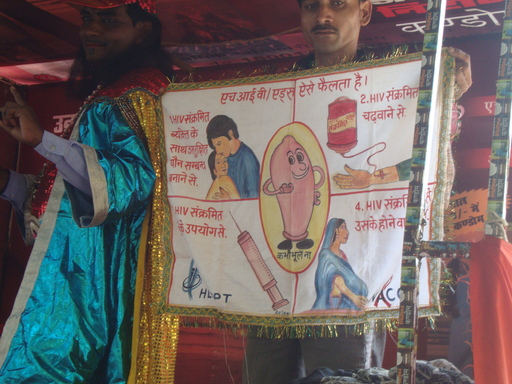 कण्डोम
एच आई वी/एड्स ऐसे फैलता है।
1.HIV संक्रमित
व्यक्ति के
साथ असुरक्षित
यौन सम्बन्ध
बनाने से.
2.HIV संक्रमित
चढ़वाने से.
HIV संक्रमित
के उपयोग से.
4. HIV संक्रमि
उसके होने वा
कभी भूले ना
HLDT
ACO
में
कण्डोम